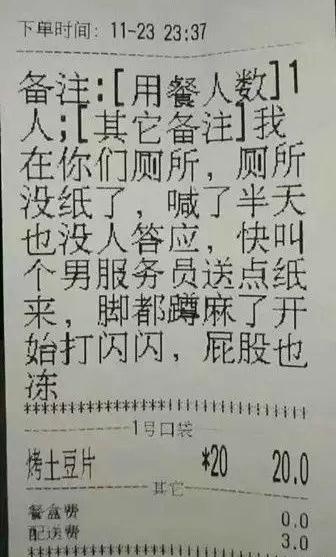 下单时间: 11-23 23:37
备注:[用餐人数]1
人;[其它备注]我
在你们厕所，厕所
没纸了，喊了半天
也没人答应，快叫
个男服务员送点纸
来，脚都蹲麻了开
始打闪闪，屁股也
冻
********************************
1号口袋
烤土豆片 *20 20.0
其它
餐盒费 0.0
配送费 3.0